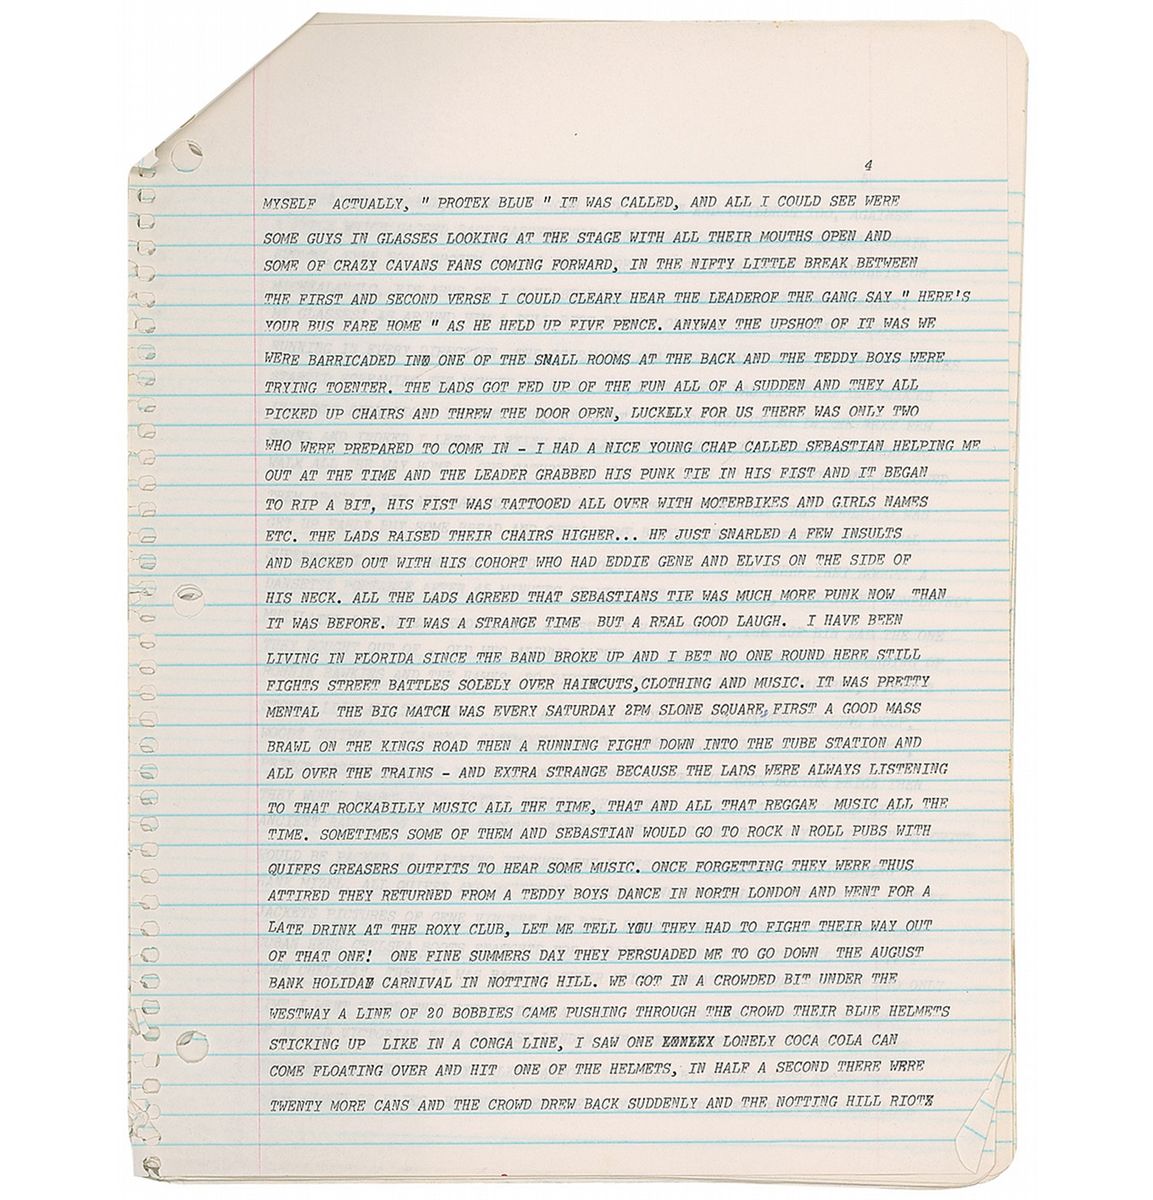 4
MYSELF ACTUALLY, " PROTEX BLUE " IT WAS CALLED, AND ALL I COULD SEE WERE
SOME GUYS IN GLASSES LOOKING AT THE STAGE WITH ALL THEIR MOUTHS OPEN AND
SOME OF CRAZY CAVANS FANS COMING FORWARD, IN THE NIFTY LITTLE BREAK BETWEEN
THE FIRST AND SECOND VERSE I COULD CLEARY HEAR THE LEADEROF THE GANG SAY " HERE'S
YOUR BUS FARE HOME " AS HE HELD UP FIVE PENCE. ANYWAY THE UPSHOT OF IT WAS WE
WERE BARRICADED IN ONE OF THE SMALL ROOMS AT THE BACK AND THE TEDDY BOYS WERE
TRYING TOENTER. THE LADS GOT FED UP OF THE FUN ALL OF A SUDDEN AND THEY ALL
PICKED UP CHAIRS AND THREW THE DOOR OPEN, LUCKILY FOR US THERE WAS ONLY TWO
WHO WERE PREPARED TO COME IN - I HAD A NICE YOUNG CHAP CALLED SEBASTIAN HELPING ME
OUT AT THE TIME AND THE LEADER GRABBED HIS PUNK TIE IN HIS FIST AND IT BEGAN
TO RIP A BIT, HIS FIST WAS TATTOOED ALL OVER WITH MOTERBIKES AND GIRLS NAMES
ETC. THE LADS RAISED THEIR CHAIRS HIGHER... HE JUST SNARLED A FEW INSULTS
AND BACKED OUT WITH HIS COHORT WHO HAD EDDIE GENE AND ELVIS ON THE SIDE OF
HIS NECK. ALL THE LADS AGREED THAT SEBASTIANS TIE WAS MUCH MORE PUNK NOW THAN
IT WAS BEFORE. IT WAS A STRANGE TIME BUT A REAL GOOD LAUGH. I HAVE BEEN
LIVING IN FLORIDA SINCE THE BAND BROKE UP AND I BET NO ONE ROUND HERE STILL
FIGHTS STREET BATTLES SOLELY OVER HAIRCUTS,CLOTHING AND MUSIC. IT WAS PRETTY
MENTAL THE BIG MATCH WAS EVERY SATURDAY 2PM SLONE SQUARE, FIRST A GOOD MASS
BRAWL ON THE KINGS ROAD THEN A RUNNING FIGHT DOWN INTO THE TUBE STATION AND
ALL OVER THE TRAINS - AND EXTRA STRANGE BECAUSE THE LADS WERE ALWAYS LISTENING
TO THAT ROCKABILLY MUSIC ALL THE TIME, THAT AND ALL THAT REGGAE MUSIC ALL THE
TIME. SOMETIMES SOME OF THEM AND SEBASTIAN WOULD GO TO ROCK N ROLL PUBS WITH
QUIFFS GREASERS OUTFITS TO HEAR SOME MUSIC. ONCE FORGETTING THEY WERE THUS
ATTIRED THEY RETURNED FROM A TEDDY BOYS DANCE IN NORTH LONDON AND WENT FOR A
LATE DRINK AT THE ROXY CLUB, LET ME TELL YOU THEY HAD TO FIGHT THEIR WAY OUT
OF THAT ONE! ONE FINE SUMMERS DAY THEY PERSUADED ME TO GO DOWN THE AUGUST
BANK HOLIDAY CARNIVAL IN NOTTING HILL. WE GOT IN A CROWDED BIT UNDER THE
WESTWAY A LINE OF 20 BOBBIES CAME PUSHING THROUGH THE CROWD THEIR BLUE HELMETS
STICKING UP LIKE IN A CONGA LINE, I SAW ONE LONELY COCA COLA CAN
COME FLOATING OVER AND HIT ONE OF THE HELMETS, IN HALF A SECOND THERE WERE
TWENTY MORE CANS AND THE CROWD DREW BACK SUDDENLY AND THE NOTTING HILL RIOT